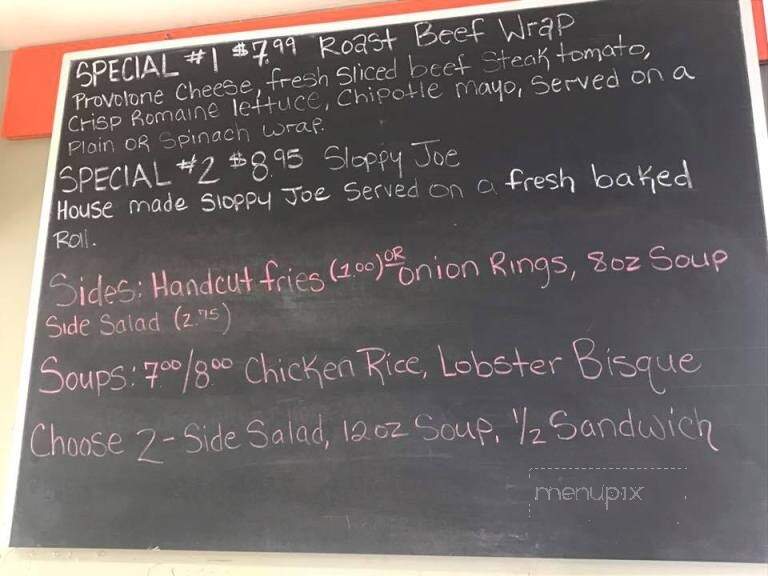 SPECIAL #1 $7.99 Roast Beef Wrap
Provolone Cheese, fresh sliced beef steak tomato,
Crisp Romaine lettuce, Chipotle mayo, served on a
Plain OR Spinach wrap.
SPECIAL #2 $8.95 Sloppy Joe
House made Sloppy Joe served on a fresh baked
Roll.
Sides: Handcut fries (1.00) OR onion Rings, 8oz Soup
Side Salad (2.75)
Soups: 7.00/8.00 Chicken Rice, Lobster Bisque
Choose 2 - Side Salad, 12oz Soup, 1/2 Sandwich
menupix